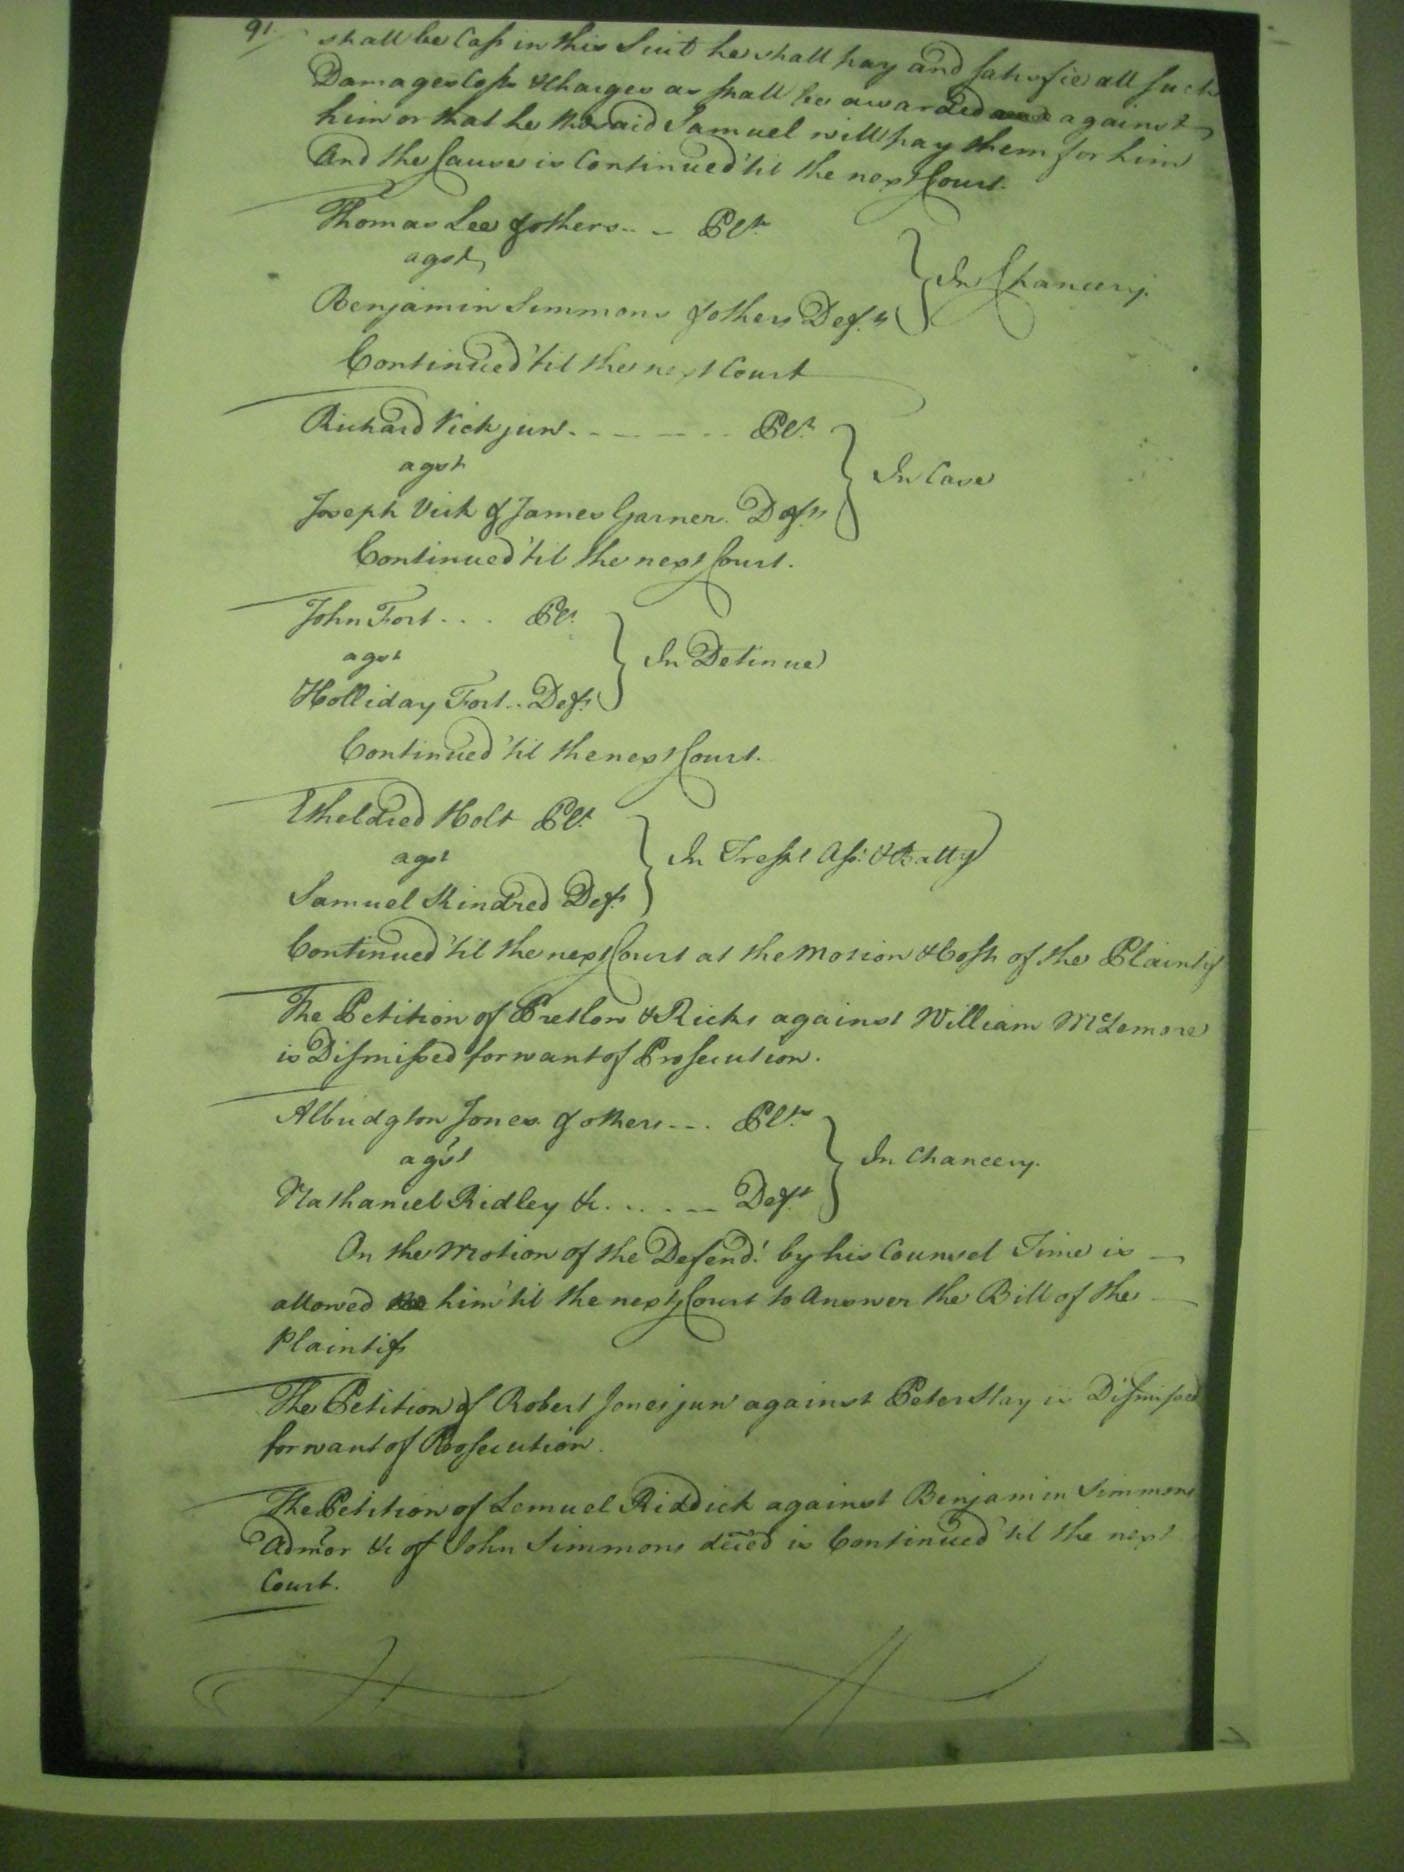 91
shall be Cast in this Suit he shall pay and satisfie all such
Damages Costs & Charges as shall be awarded against
him or that he the said Samuel will pay them for him
And the Cause is Continued 'til the next Court.
Thomas Lee & others .. - Plts
agst
Benjamin Simmons & others Defts
In Chancery.
Continued 'til the next Court
Richard Vick junr. - - - - - - Plt.
agst
Joseph Vick & James Garner. Defts
In Case
Continued 'til the next Court.
John Fort . . . Plt.
agst
Holliday Fort .. Deft.
In Detinue
Continued 'til the next Court.
Etheldred Holt Plt.
agst
Samuel Kindred Deft.
In Tresps Asst. & Batty
Continued 'til the next Court at the Motion & Costs of the Plaintif
The Petition of Pretlow & Ricks against William McLemore
is Dismissed for want of Prosecution.
Albridgton Jones & others - - . Plts.
agst
Nathaniel Ridley &c. . . . . - - Deft.
In Chancery.
On the Motion of the Defendt. by his Counsel Time is
allowed him 'til the next Court to Answer the Bill of the
Plaintifs
The Petition of Robert Jones junr against Peter Hay is Dismissed
for want of Prosecution.
The Petition of Lemuel Riddick against Benjamin Simmons
Admor &c of John Simmons deced is Continued 'til the next
Court.